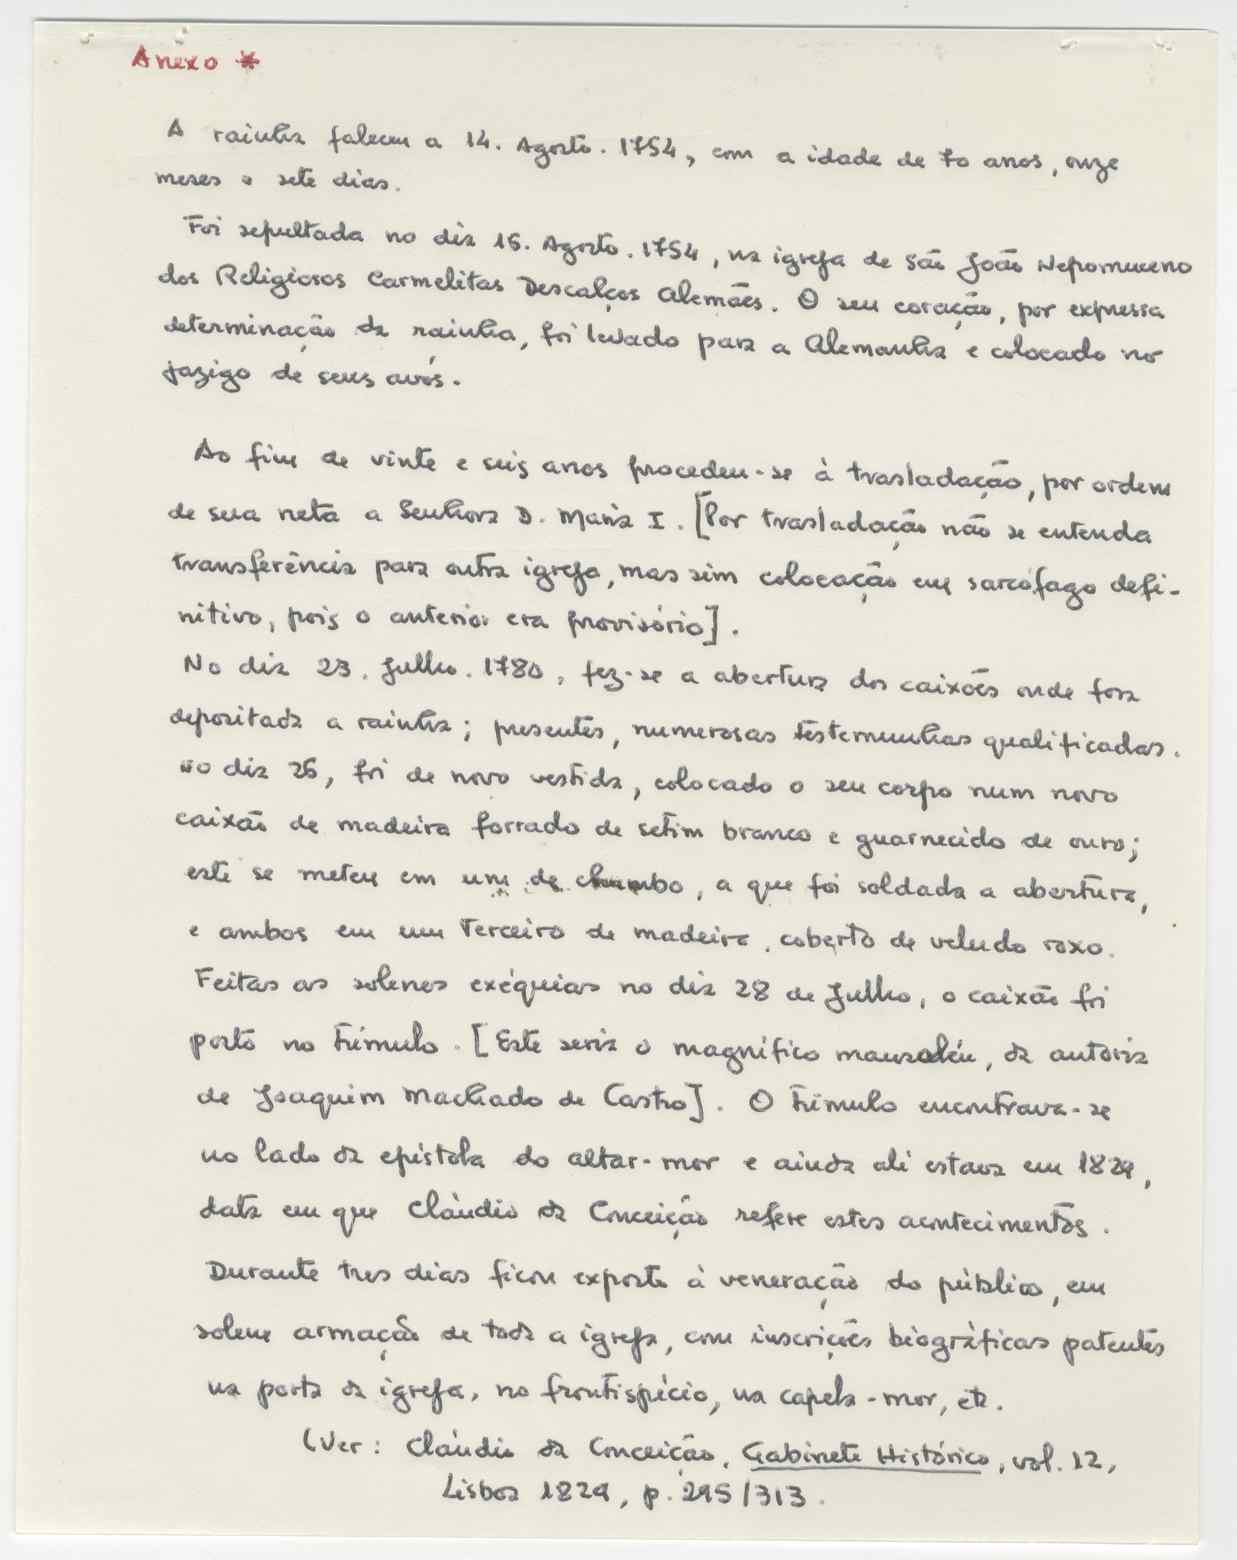 Anexo *
A rainha faleceu a 14. Agosto. 1754, com a idade de 70 anos, onze
meses e sete dias.
Foi sepultada no dia 16. Agosto. 1754, na igreja de São João Nepomuceno
dos Religiosos Carmelitas Descalços Alemães. O seu coração, por expressa
determinação da rainha, foi levado para a Alemanha e colocado no
jazigo de seus avós.
Ao fim de vinte e seis anos procedeu-se à trasladação, por ordem
de sua neta a Senhora D. Maria I. [Por trasladação não se entenda
transferência para outra igreja, mas sim colocação em sarcófago defi-
nitivo, pois o anterior era provisório].
No dia 23. Julho. 1780, fez-se a abertura dos caixões onde fora
depositada a rainha; presentes, numerosas testemunhas qualificadas.
No dia 26, foi de novo vestida, colocado o seu corpo num novo
caixão de madeira forrado de setim branco e guarnecido de ouro;
este se meteu em um de chumbo, a que foi soldada a abertura,
e ambos em um terceiro de madeira, coberto de veludo roxo.
Feitas as solenes exéquias no dia 28 de Julho, o caixão foi
posto no túmulo. [Este seria o magnífico mausoléu, da autoria
de Joaquim Machado de Castro]. O túmulo encontrava-se
no lado da epístola do altar-mor e ainda ali estava em 1829,
data em que Cláudio da Conceição refere estes acontecimentos.
Durante tres dias ficou exposto à veneração do público, em
solene armação de toda a igreja, com inscrições biográficas patentes
na porta da igreja, no frontispício, na capela-mor, etc.
(Ver: Cláudio da Conceição, Gabinete Histórico, vol. 12,
Lisboa 1829, p. 295/313.